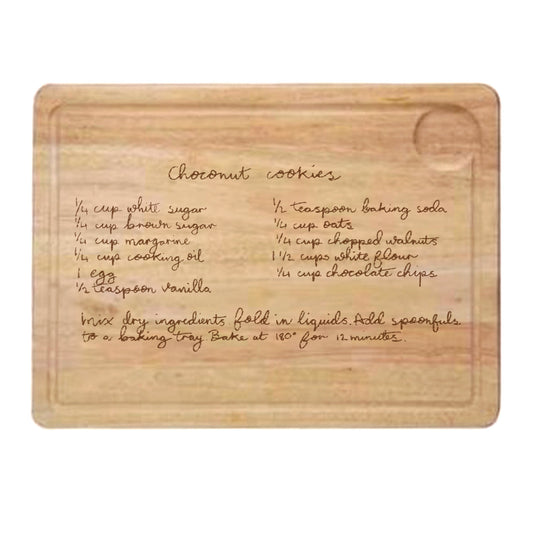 Choconut cookies
1/4 cup white sugar
1/4 cup brown sugar
1/4 cup margarine
1/4 cup cooking oil
1 egg
1/2 teaspoon vanilla
1/2 teaspoon Baking soda
1/4 cup oats
1/4 cup chopped walnuts
1 1/2 cups white flour
1/4 cup chocolate chips
mix dry ingredients fold in liquids. Add spoonfuls
to a baking tray Bake at 180° for 12 minutes.